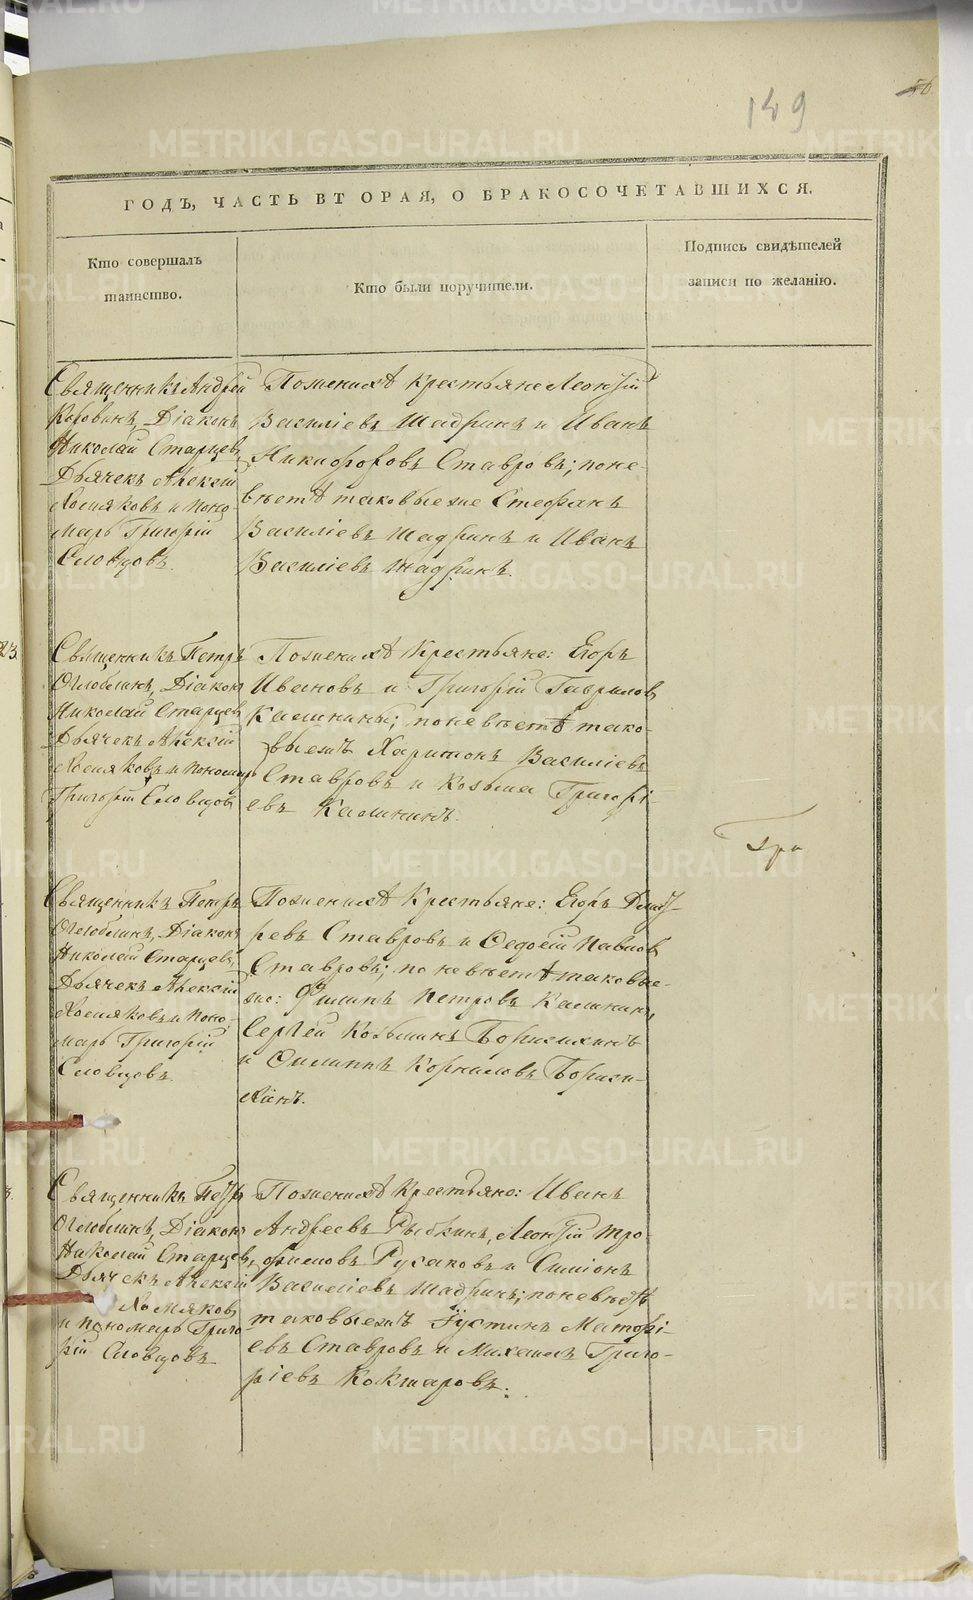 149
56.
ГОДЪ, ЧАСТЬ ВТОРАЯ, О БРАКОСОЧЕТАВШИХСЯ.
Кто совершалъ
таинство.
Кто были поручители.
Подпись свидѣтелей
записи по желанію.
Священникъ Андрей
Діаконъ
Николай Старцевъ,
Дьячекъ Алексій
Хомяковъ и Поно-
марь Григорій
Словцовъ.
По женихѣ Крестьяне Леонтій
Василіевъ Шадринъ и Иванъ
Никифоровъ Ставровъ; по не-
вѣстѣ таковые же Стефанъ
Василіевъ Шадринъ и Иванъ
Василіевъ Шадринъ.
23.
Священникъ Петръ
Оглоблинъ, Діаконъ
Николай Старцевъ,
Дьячекъ Алексій
Хомяковъ и Пономарь
Григорій Словцовъ
По женихѣ Крестьяне: Егоръ
Ивановъ и Григорій Гавриловъ
Кашкины; по невѣстѣ тако-
выежъ Харитонъ Василіевъ
Ставровъ и Козьма Григорі-
евъ Кашкинъ.
Священникъ Петръ
Оглоблинъ, Діаконъ
Николай Старцевъ,
Дьячекъ Алексій
Хомяковъ и Поно-
марь Григорій
Словцовъ.
По женихѣ Крестьяне: Егоръ Дмит-
ревъ Ставровъ и Ѳедосій Павловъ
Ставровъ; по невѣстѣ таковые-
же: Филипъ Петровъ Кашкинъ,
Сергей Козьминъ Борисихинъ
и Филиппъ Корниловъ Бориси-
хинъ.
Священникъ Петръ
Оглоблинъ, Діаконъ
Николай Старцевъ,
Дьячекъ Алексій
Хомяковъ
и пономарь Григо-
рій Словцовъ
По женихѣ Крестьяне: Иванъ
Андреевъ Рыбкинъ, Леонтій Тро-
фимовъ Русаковъ и Симіонъ
Василіевъ Шадринъ; по невѣстѣ
таковыежъ Іустинъ Матѳѣ-
евъ Ставровъ и Михаилъ Григо-
ріевъ Кокшаровъ.
METRIKI.GASO-URAL.RU